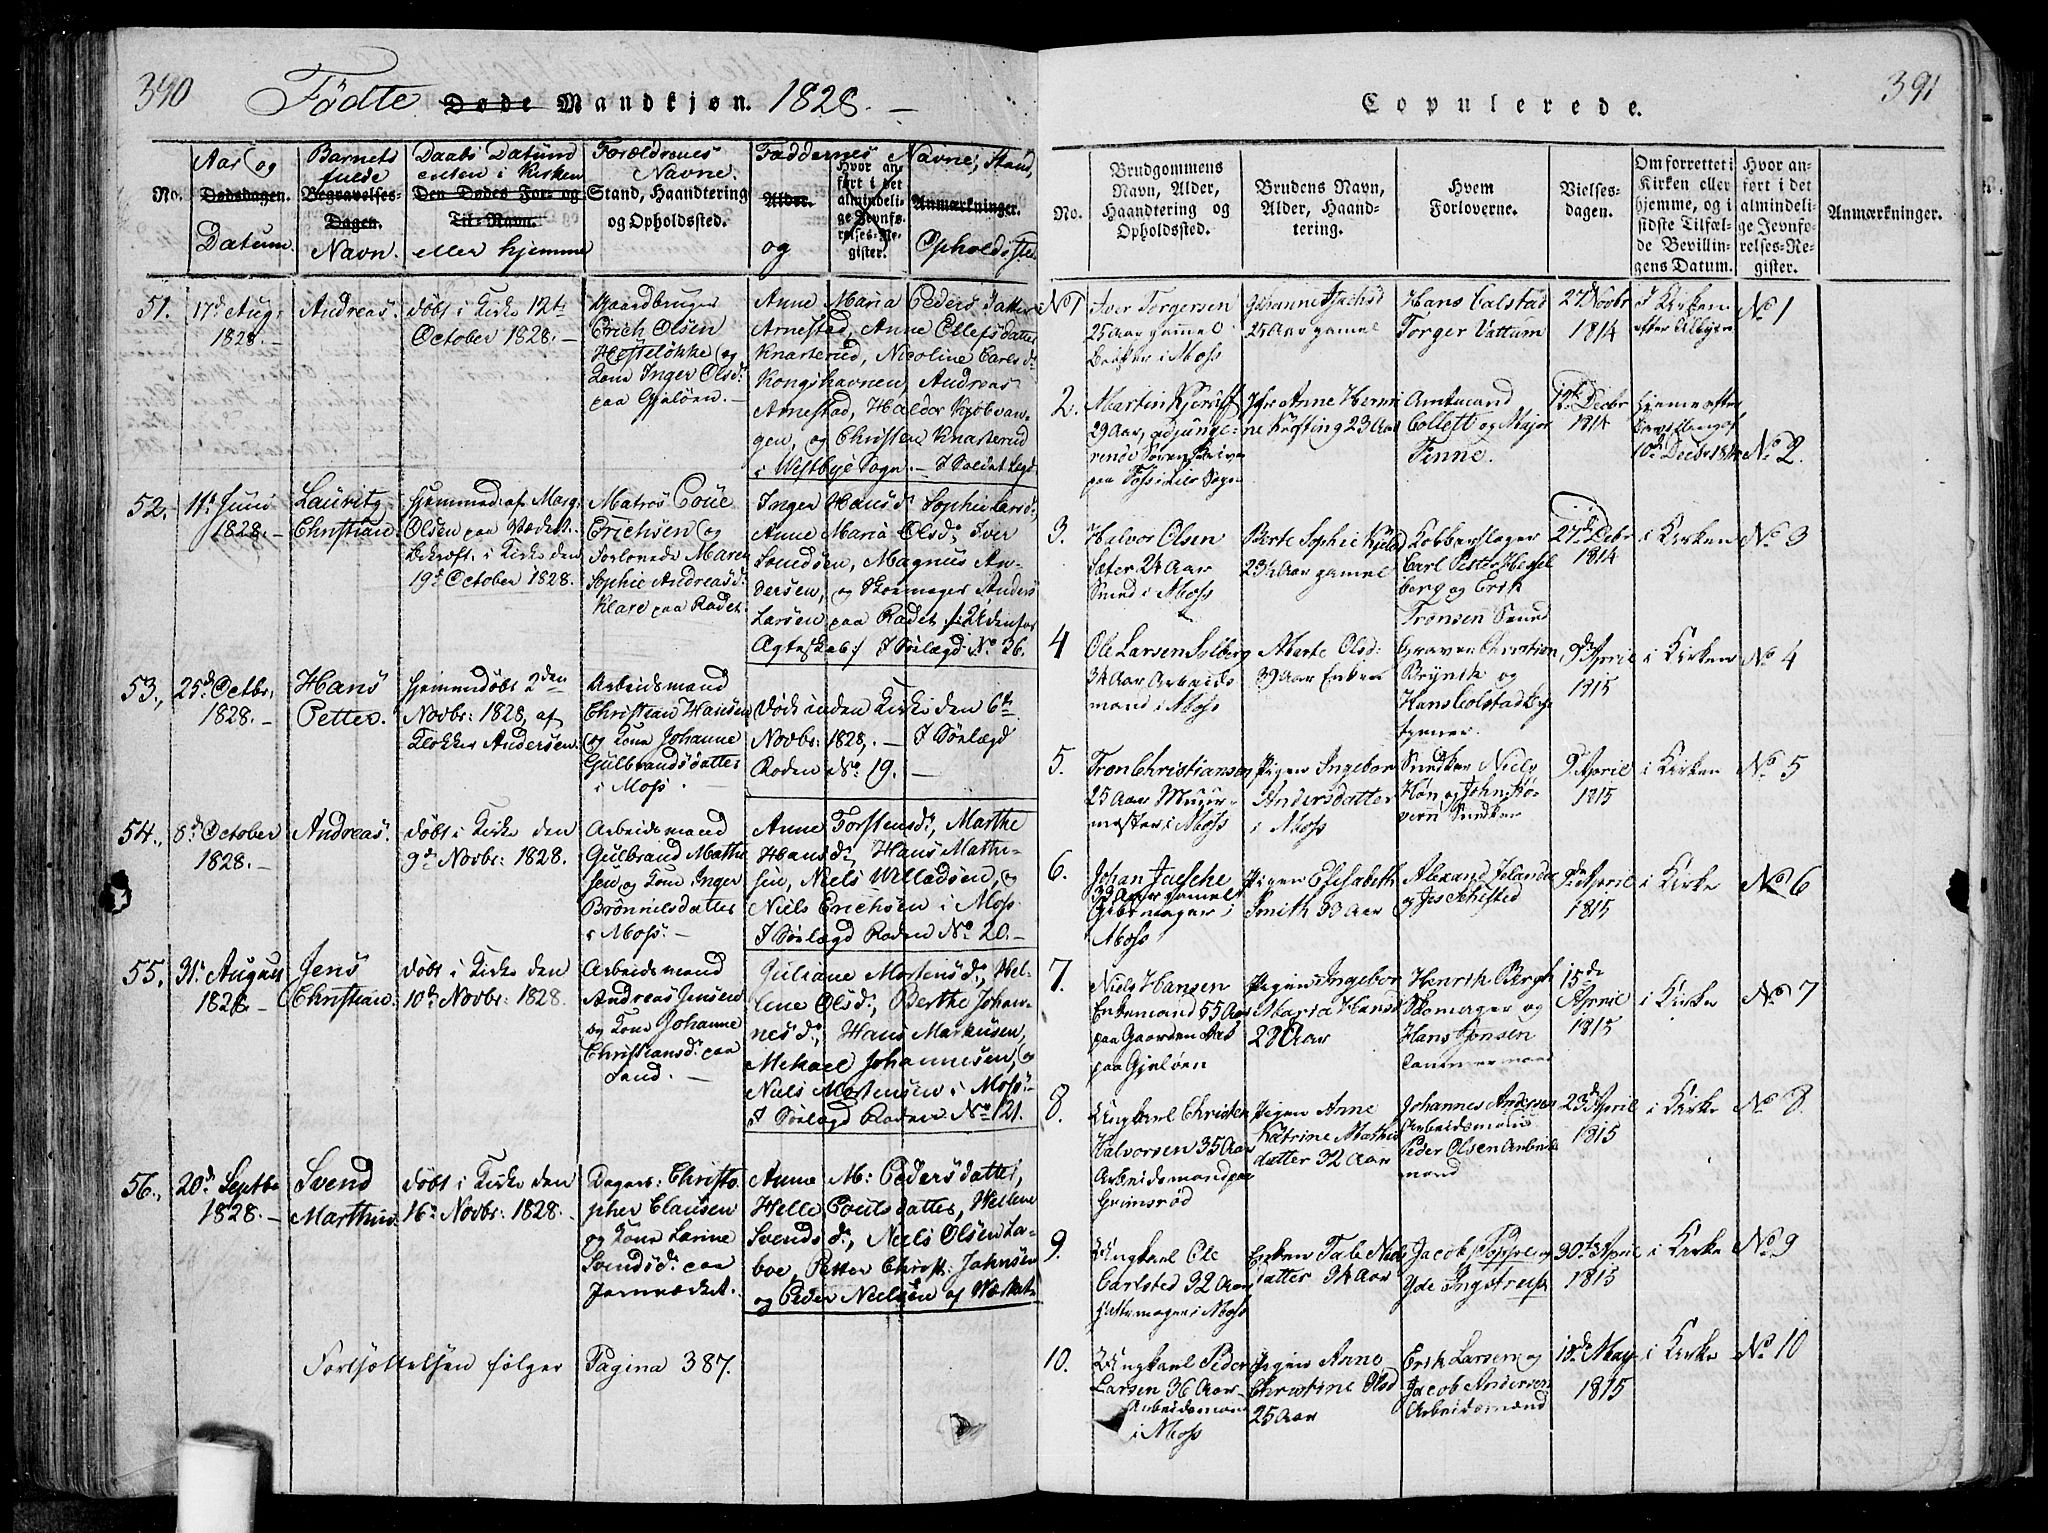 390
Födte Døde Mandkjøn. 1828. —
No.
Aar og
Dødsdagen.
Datum.
Barnets
fulde
Begravelses-
Dagen.
Navn.
Daabs Datum
enten i Kirken
Den Dødes For- og
Til-Navn.
eller hjemme
Forældrenes
Navne.
Stand, Haandtering
og Opholdssted.
Faddernes Navne, Stand,
Alder.
og
Hvor an-
ført i det
almindeli-
ge Jevnfø-
relses-Re-
gister.
Anmærkninger.
Opholdsste
51.
17d Aug:
1828. —
Andreas.
døbt i Kirke 12te
October 1828. —
Gaardbruger
Erich Olsen
Hesteløkke og
Kone Inger Olsd:
paa Gjeløen. —
Anne Maria Peders Datter
Arnestad, Anne Ellefsdatter
Knasterud, Nicoline Carlsd:
Kongshavnen, Andreas
Arnestad, Haldor Kjøbvan-
gen, og Christen Knasterud
i Westbye Sogn. — I Soldat Legd
52.
11te Juni
1828. —
Lauritz
Christian.
hjemmed: af Marg:
Olsen paa Værket.
Bekræft: i Kirke den
19d October 1828.
Matros Poue
Erichsen og
Forlovede Maren
Sophie Andreasd:
Klare paa Radet.
Inger Hansd: Sophie Larsd:,
Anne Maria Olsd: Iver
Svendsen, Magnus An-
dersen, og Skomager Anders
Larsen paa Radet /: Udenfor
Ægteskab:/ I Sølægd No 36.
53.,
25d Octbr:
1828. —
Hans
Petter.
hjemmedøbt 2den
Novbr: 1828, af
Klokker Andersen.
Arbeidsmand
Christian Hansen
og Kone Johanne
Gulbrandsdatter
i Moss. —
Død inden Kirke den 6te
Novbr: 1828. — I Sølægd
Roden No 19. —
54.,
8d October
1828. —
Andreas.
døbt i Kirke den
9d Novbr: 1828.
Arbeidsmand
Gulbrand Mathi
sen og Kone Inger
Brönnilsdatter
i Moss. —
Anne Torstensd:, Marthe
Hansd:, Hans Mathi-
sen, Niels Willadsen, og
Niels Erichsen i Moss
I Sølægd Roden No 20. —
55.
31te August
1828. —
Jens
Christian.
døbt i Kirke den
10d Novbr: 1828.
Arbeidsmand
Andreas Jensen
og Kone Johanne
Christiansd: paa
Sand. —
Juliane Mortensd:, Hel-
lene Olsd:, Berthe Johan-
nesd:, Hans Markusen,
Mekael Johannesen, og
Niels Mortensen i Moss.
I Sølægd Roden No 121.
56.,
20d Septbr
1828. —
Svend
Marthin.
døbt i Kirke den
16d Novbr: 1828.
Christo
pher Clausen
og Kone Larine
Svendsd: paa
Jernværket.
Anne M: Pedersdatter,
Helle Poulsdatter, Hellene
Svendsd:, Niels Olsen La-
boe, Petter Christ: Johnsen
og Peder Nielsen af Værket.
Fortsættelsen følger Pagina 387.
391
Copulerede.
No.
Brudgommens
Navn, Alder,
Haandtering og
Opholdssted.
Brudens Navn,
Alder, Haand-
tering.
Hvem
Forloverne.
Vielses-
dagen.
Om forrettet i
Kirken eller
hjemme, og i
sidste Tilfæl-
de Bevillin-
gens Datum.
Hvor an-
ført i det
almindeli-
ge Jevnfø-
relses-Re-
gister.
Anmærkninger.
No 1
Iver Torgersen
25 Aar gammel
i Moss
25 Aar gamel
Hans Calstad
Torger Vattum
27 Novbr
1814
I Kirken
No 1
2.
Martin Kjerulf
29 Aar, adjunge-
rende
Jfr Anne Henri
ne Kösting 23 Aar
Amtmand
Collett og Major
Finne.
12te Decbr
1814
hjemme efter
10de Decbr 1814
No 2
3.
Halvor Olsen
Sæter 24 Aar
Smed i Moss
Berte Sophie
23½ Aar gamel
Kobberslager
Carl Petter Hessel
berg og Erik
Tronsen Smed
27de Debr
1814
i Kirken
No 3
4
Ole Larsen Solberg
34 Aar Arbeids
mand i Moss
Marte Olsd:
39 Aar Enken
Graver Christian
Brynik og
Hans Colstad
9de April
1815
i Kirken
No 4
5.
Tron Christiansen
25 Aar Muur-
mester i Moss
Pigen Ingebor
Andersdatter
i Moss
Snedker Niels
Høn og John
Snedker
9 April
1815
i Kirken
No 5
6.
Johan Jaesche
33 Aar gamel
i
Moss
Pigen Elisabeth
Smith 33 Aar
Alexand
og Jes Schifted
9de April
1815
i Kirke
No 6
7.
Niels Hansen
Enkemand 55 Aar
paa Gaarden
paa Gjeløen
Pigen Ingebor
Maria Hansd
28 Aar
Henrik Bergh
Skomager og
Hans Jonsen
Tømmermand
15de
April
1815
i Kirke
No 7
8.
Ungkarl Christen
Halvorsen 35 Aar
Arbeidsmand paa
Grimsrød
Pigen Anne
Katrine Mathis
datter 32 Aar
Johannes Andersen
Arbeidsmand
Peder Olsen Arbeids
mand
23de April
1815
i Kirke
No 8.
9.
Ungkarl Ole
Carlsted 32 Aar
i Moss
Enken Tale Niels
datter 34 Aar
Jacob Poppe og
Yde Ingstrup
30te April
1815
i Kirke
No 9
10.
Ungkarl Peder
Larsen 36 Aar
Arbeidsmand
i Moss
Pigen Anne
Christine Olsd
25 Aar
Erik Larsen og
Jacob Andersen
Arbeidsmænd
18de May
1815
i Kirke
No 10